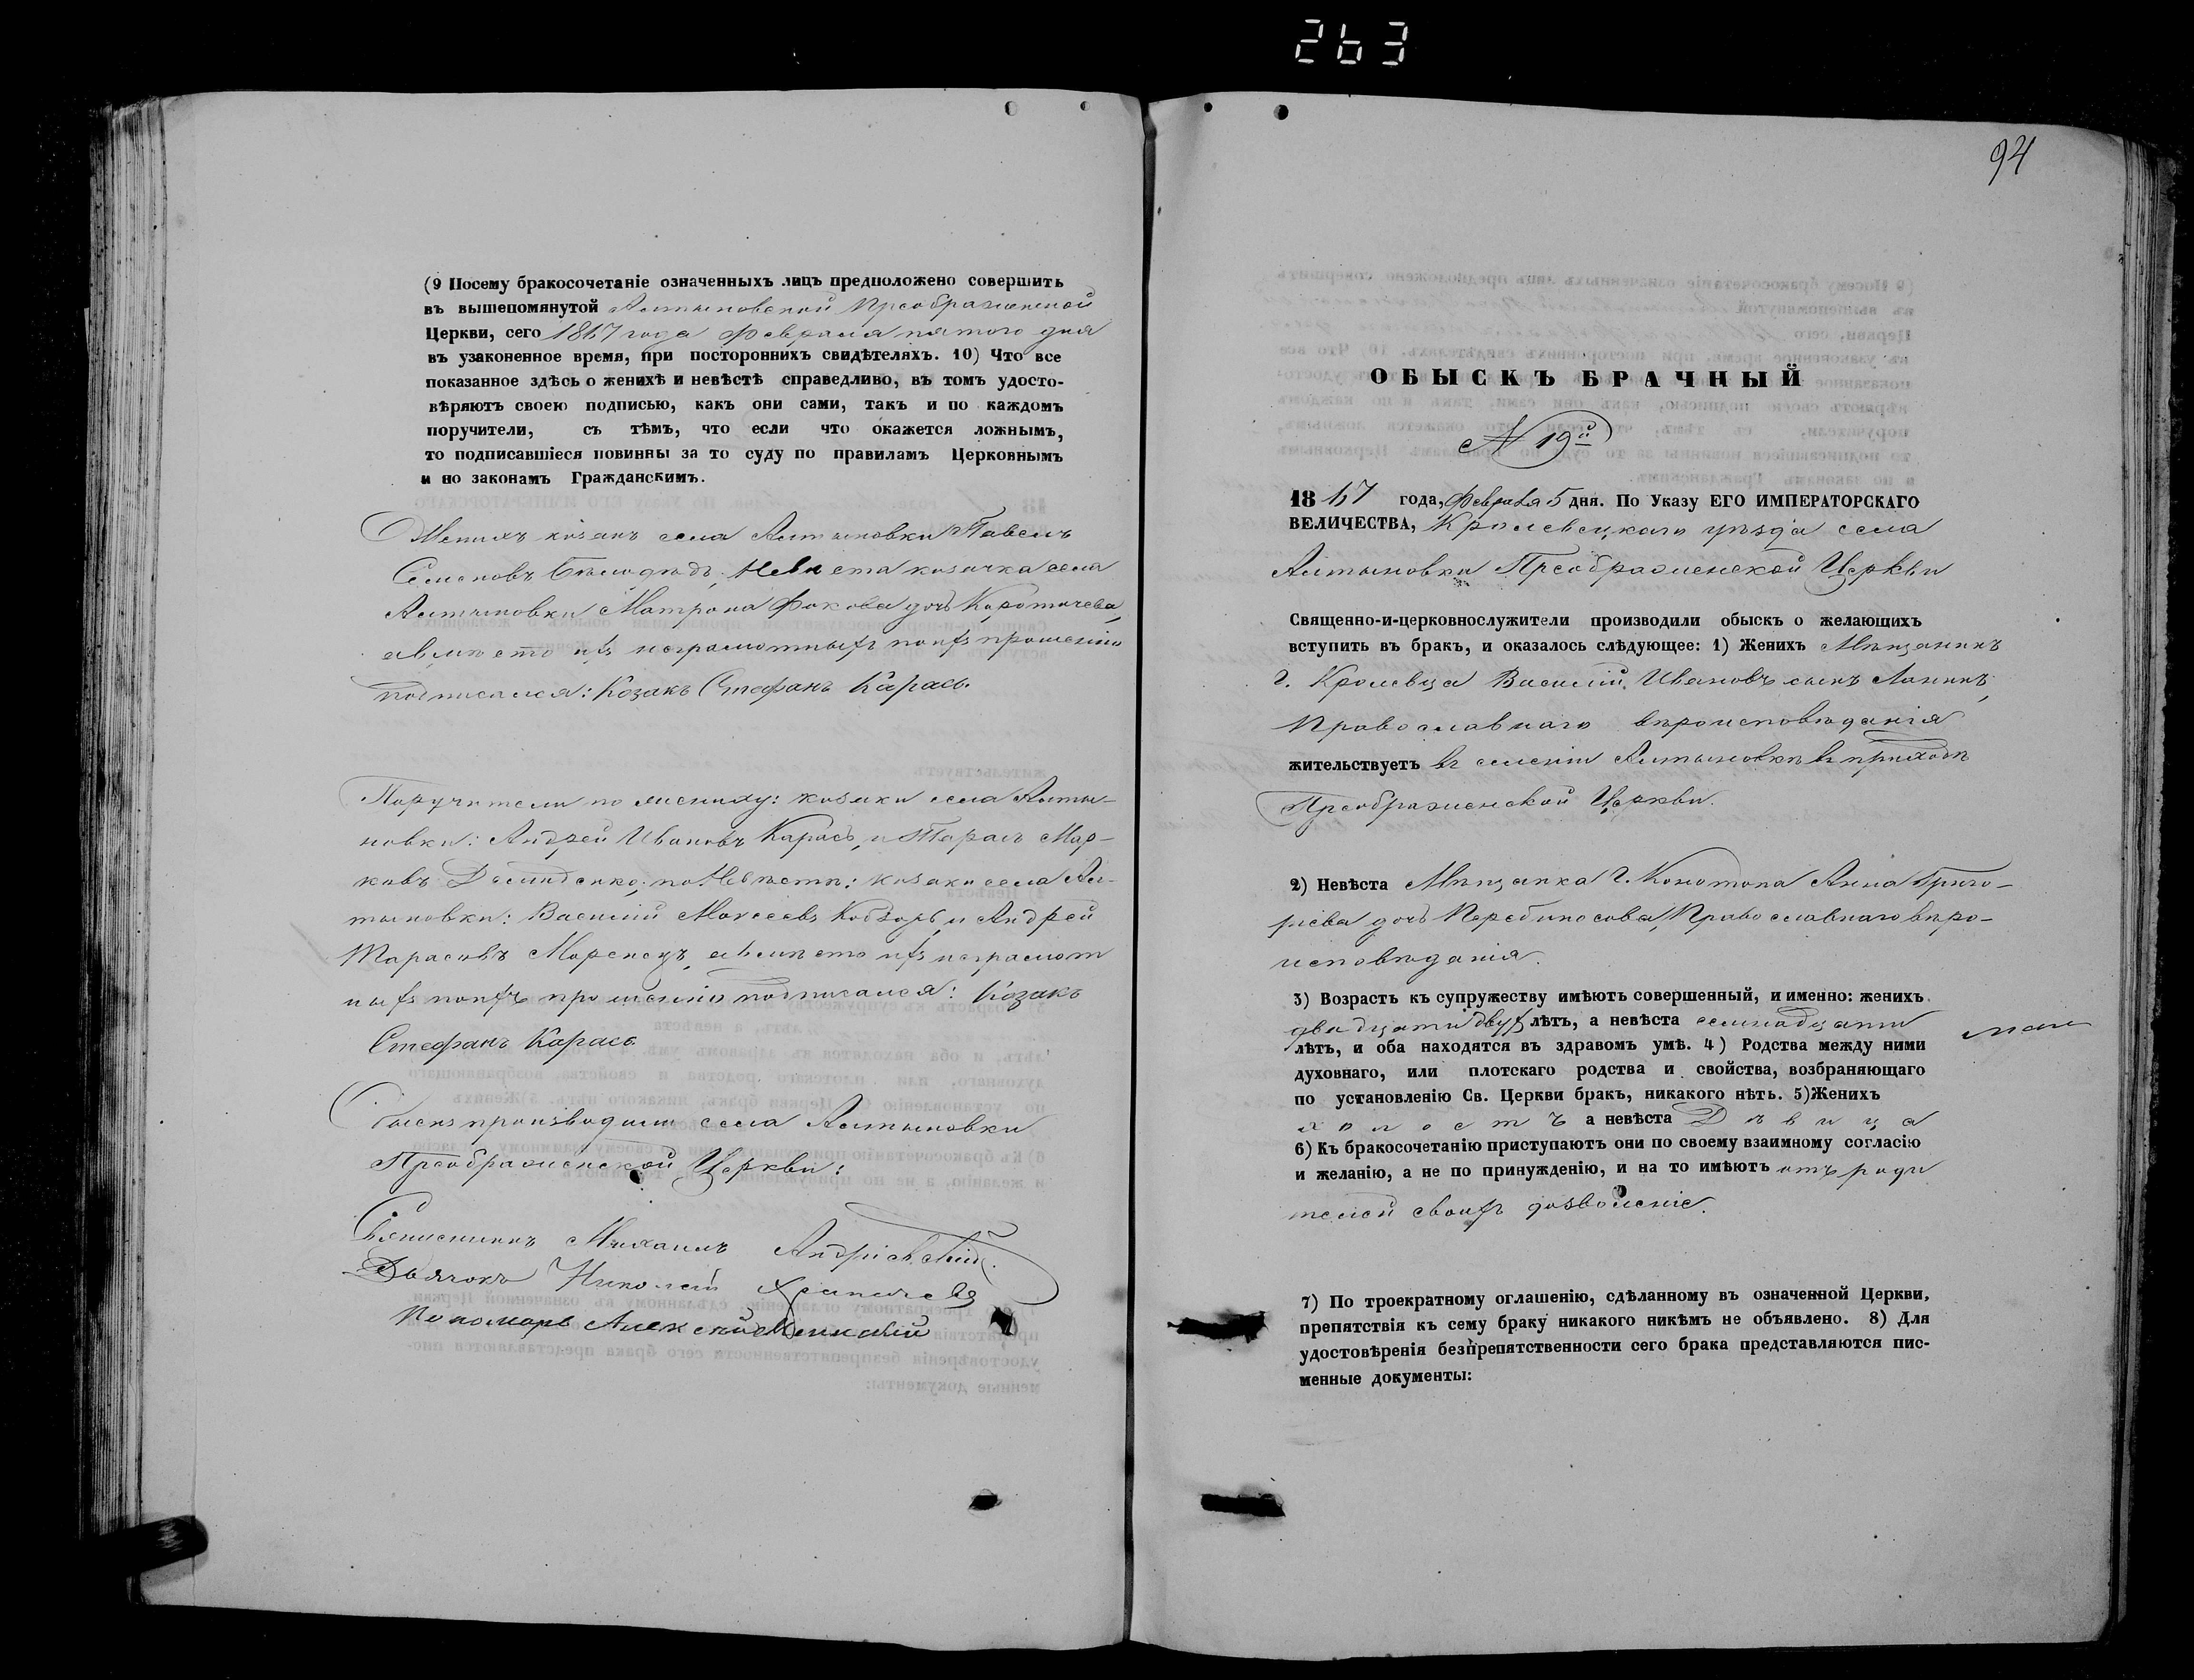 263
(9 Посему бракосочетаніе означенныхъ лицъ предположено совершить
въ вышепомянутой Алтыновской Преображенской
Церкви, сего 1867 года Февраля пятого дня
въ узаконенное время, при постороннихъ свидѣтеляхъ. 10) Что все
показанное здѣсь о женихѣ и невѣстѣ справедливо, въ томъ удосто-
вѣряютъ своею подписью, какъ они сами, такъ и по каждомъ
поручители, съ тѣмъ, что если что окажется ложнымъ,
то подписавшіеся повинны за то суду по правиламъ Церковнымъ
и по законамъ Гражданскимъ.
Женихъ козакъ села Алтыновки Павелъ
Семеновъ Бѣлодѣдъ, Невѣста козачка села
Алтыновки Матрона Фокова дочь Коротичева,
авмѣсто ихъ неграмотныхъ поихъ прошенію
подписался: Козакъ Стефанъ Карась.
Поручители по жениху: козаки села Алты-
новки: Андрей Ивановъ Карась, и Тарасъ Мар-
ковъ Демиденко; по Невѣстѣ: козаки села Ал-
тыновки: Василий Моисеевъ Кобзарь, и Андрей
Тарасовъ Моренецъ, авмѣсто ихъ неграмот
ныхъ поихъ прошенію подписался: Козакъ
Стефанъ Карась
Обыскъ производили села Алтыновки
Преображенской Церкви:
Священникъ Михаилъ Андріевскій.
Дьячокъ Николай
Пономарь Алексѣй
94
ОБЫСКЪ БРАЧНЫЙ
№ 19й
1867 года, Февраля 5 дня. По Указу ЕГО ИМПЕРАТОРСКАГО
ВЕЛИЧЕСТВА, Кролевецкаго уѣзда села
Алтыновки Преображенской Церкви
Священно-и-церковнослужители производили обыскъ о желающихъ
вступить въ бракъ, и оказалось слѣдующее: 1) Женихъ Мѣщанинъ
г. Кролевца Василій Ивановъ сынъ Лапинъ,
Православнаго вѣроисповѣданія
жительствуетъ въ селеніи Алтыновкѣ въ приходѣ
Преображенской Церкви.
2) Невѣста Мѣщанка г. Конотопа Анна Григо-
ріева дочь Перебиносова, Православнаго вѣро-
исповѣданія.
3) Возрастъ къ супружеству имѣютъ совершенный, и именно: женихъ
двадцати двухъ лѣтъ, а невѣста семнадцати
лѣтъ, и оба находятся въ здравомъ умѣ. 4) Родства между ними
духовнаго, или плотскаго родства и свойства, возбраняющаго
по установленію Св. Церкви бракъ, никакого нѣтъ. 5)Женихъ
холостъ а невѣста Дѣвица
6) Къ бракосочетанію приступаютъ они по своему взаимному согласію
и желанію, а не по принужденію, и на то имѣютъ отъ роди
телей своихъ дозволеніе.
7) По троекратному оглашенію, сдѣланному въ означенной Церкви,
препятствія къ сему браку никакого никѣмъ не объявлено. 8) Для
удостовѣренія безпрепятственности сего брака представляются пис-
менные документы: